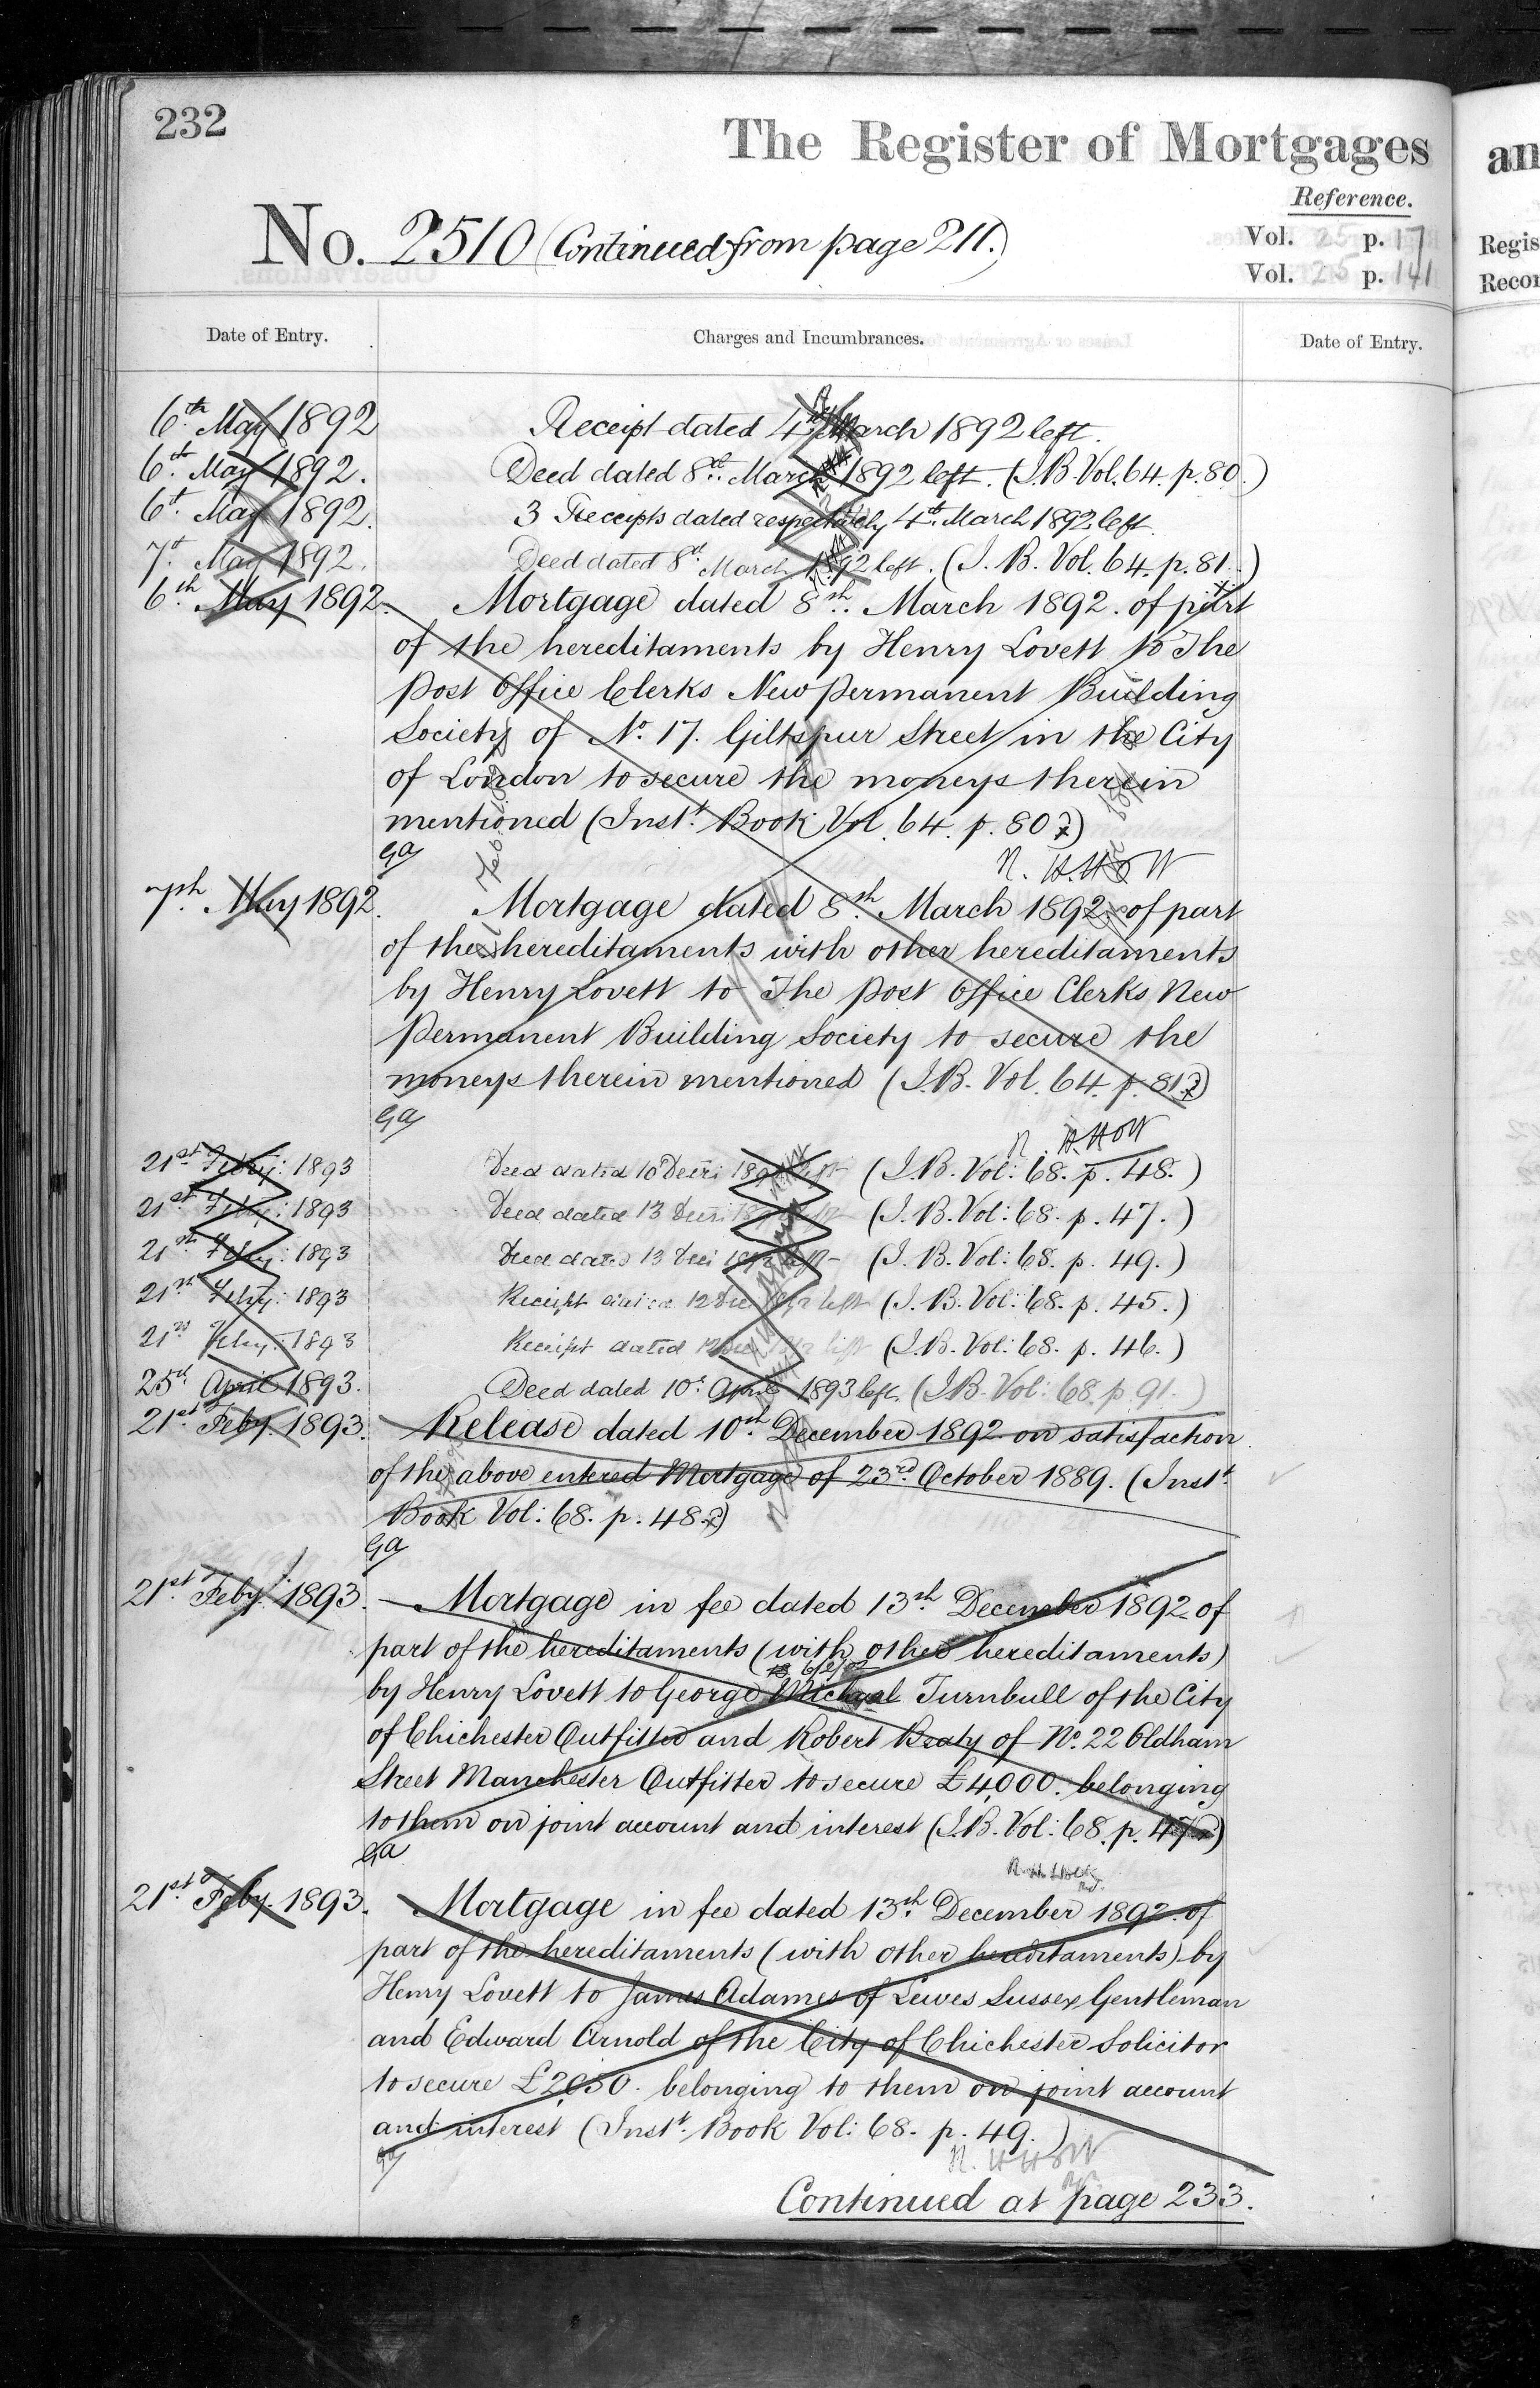 232
The Register of Mortgages
an
Reference.
No. 2510 (Continued from page 211.)
Vol. 25 p. 17
Vol. 25 p. 141
Regis
Recor
Date of Entry.
Charges and Incumbrances.
Date of Entry.
6th May 1892 Receipt dated 4th March 1892 left.
6th May 1892. Deed dated 8th March 1892 left. (I.B. Vol. 64. p. 80.)
6th May 1892. 3 Receipts dated respectively 4th March 1892 left.
7th May 1892. Deed dated 8th March 1892 left. (I. B. Vol. 64. p. 81.)
6th May 1892. Mortgage dated 8th March 1892. of part
of the hereditaments by Henry Lovett to The
Post Office Clerks New Permanent Building
Society of No. 17. Giltspur Street in the City
of London to secure the moneys therein
mentioned (Inst. Book Vol. 64. p. 80.)
Ga
7th May 1892. Mortgage dated 8th March 1892. of part
of the hereditaments with other hereditaments
by Henry Lovett to The Post Office Clerks New
Permanent Building Society to secure the
moneys therein mentioned (I.B. Vol. 64. p. 81.)
Ga
21st Feby: 1893 Deed dated 10 Decr: 1892 left (I.B. Vol: 68. p. 48.)
21st Feby: 1893 Deed dated 13 Decr: 1892 left (I.B. Vol: 68. p. 47.)
21st Feby: 1893 Deed dated 13 Decr 1892 left (I. B. Vol: 68. p. 49.)
21st Feby: 1893 Receipt dated 12 Decr 1892 left (I. B. Vol: 68. p. 45.)
21st Feby: 1893 Receipt dated 12 Decr 1892 left (I.B. Vol: 68. p. 46.)
25th April 1893. Deed dated 10th April 1893 left. (I.B. Vol: 68. p. 91.)
21st Feby. 1893. Release dated 10th December 1892 on satisfaction
of the above entered Mortgage of 23rd October 1889. (Inst.
Book Vol: 68. p. 48.)
Ga
21st Feby. 1893. Mortgage in fee dated 13th December 1892 of
part of the hereditaments (with other hereditaments)
by Henry Lovett to George Michael Turnbull of the City
of Chichester Outfitter and Robert Beaty of No. 22 Oldham
Street Manchester Outfitter to secure £4,000. belonging
to them on joint account and interest (I.B. Vol: 68. p. 47.)
Ga
21st Feby. 1893. Mortgage in fee dated 13th December 1892. of
part of the hereditaments (with other hereditaments) by
Henry Lovett to James Adames of Lewes Sussex Gentleman
and Edward Arnold of the City of Chichester Solicitor
to secure £2,050. belonging to them on joint account
and interest (Inst. Book Vol: 68. p. 49.)
Ga
Continued at page 233.